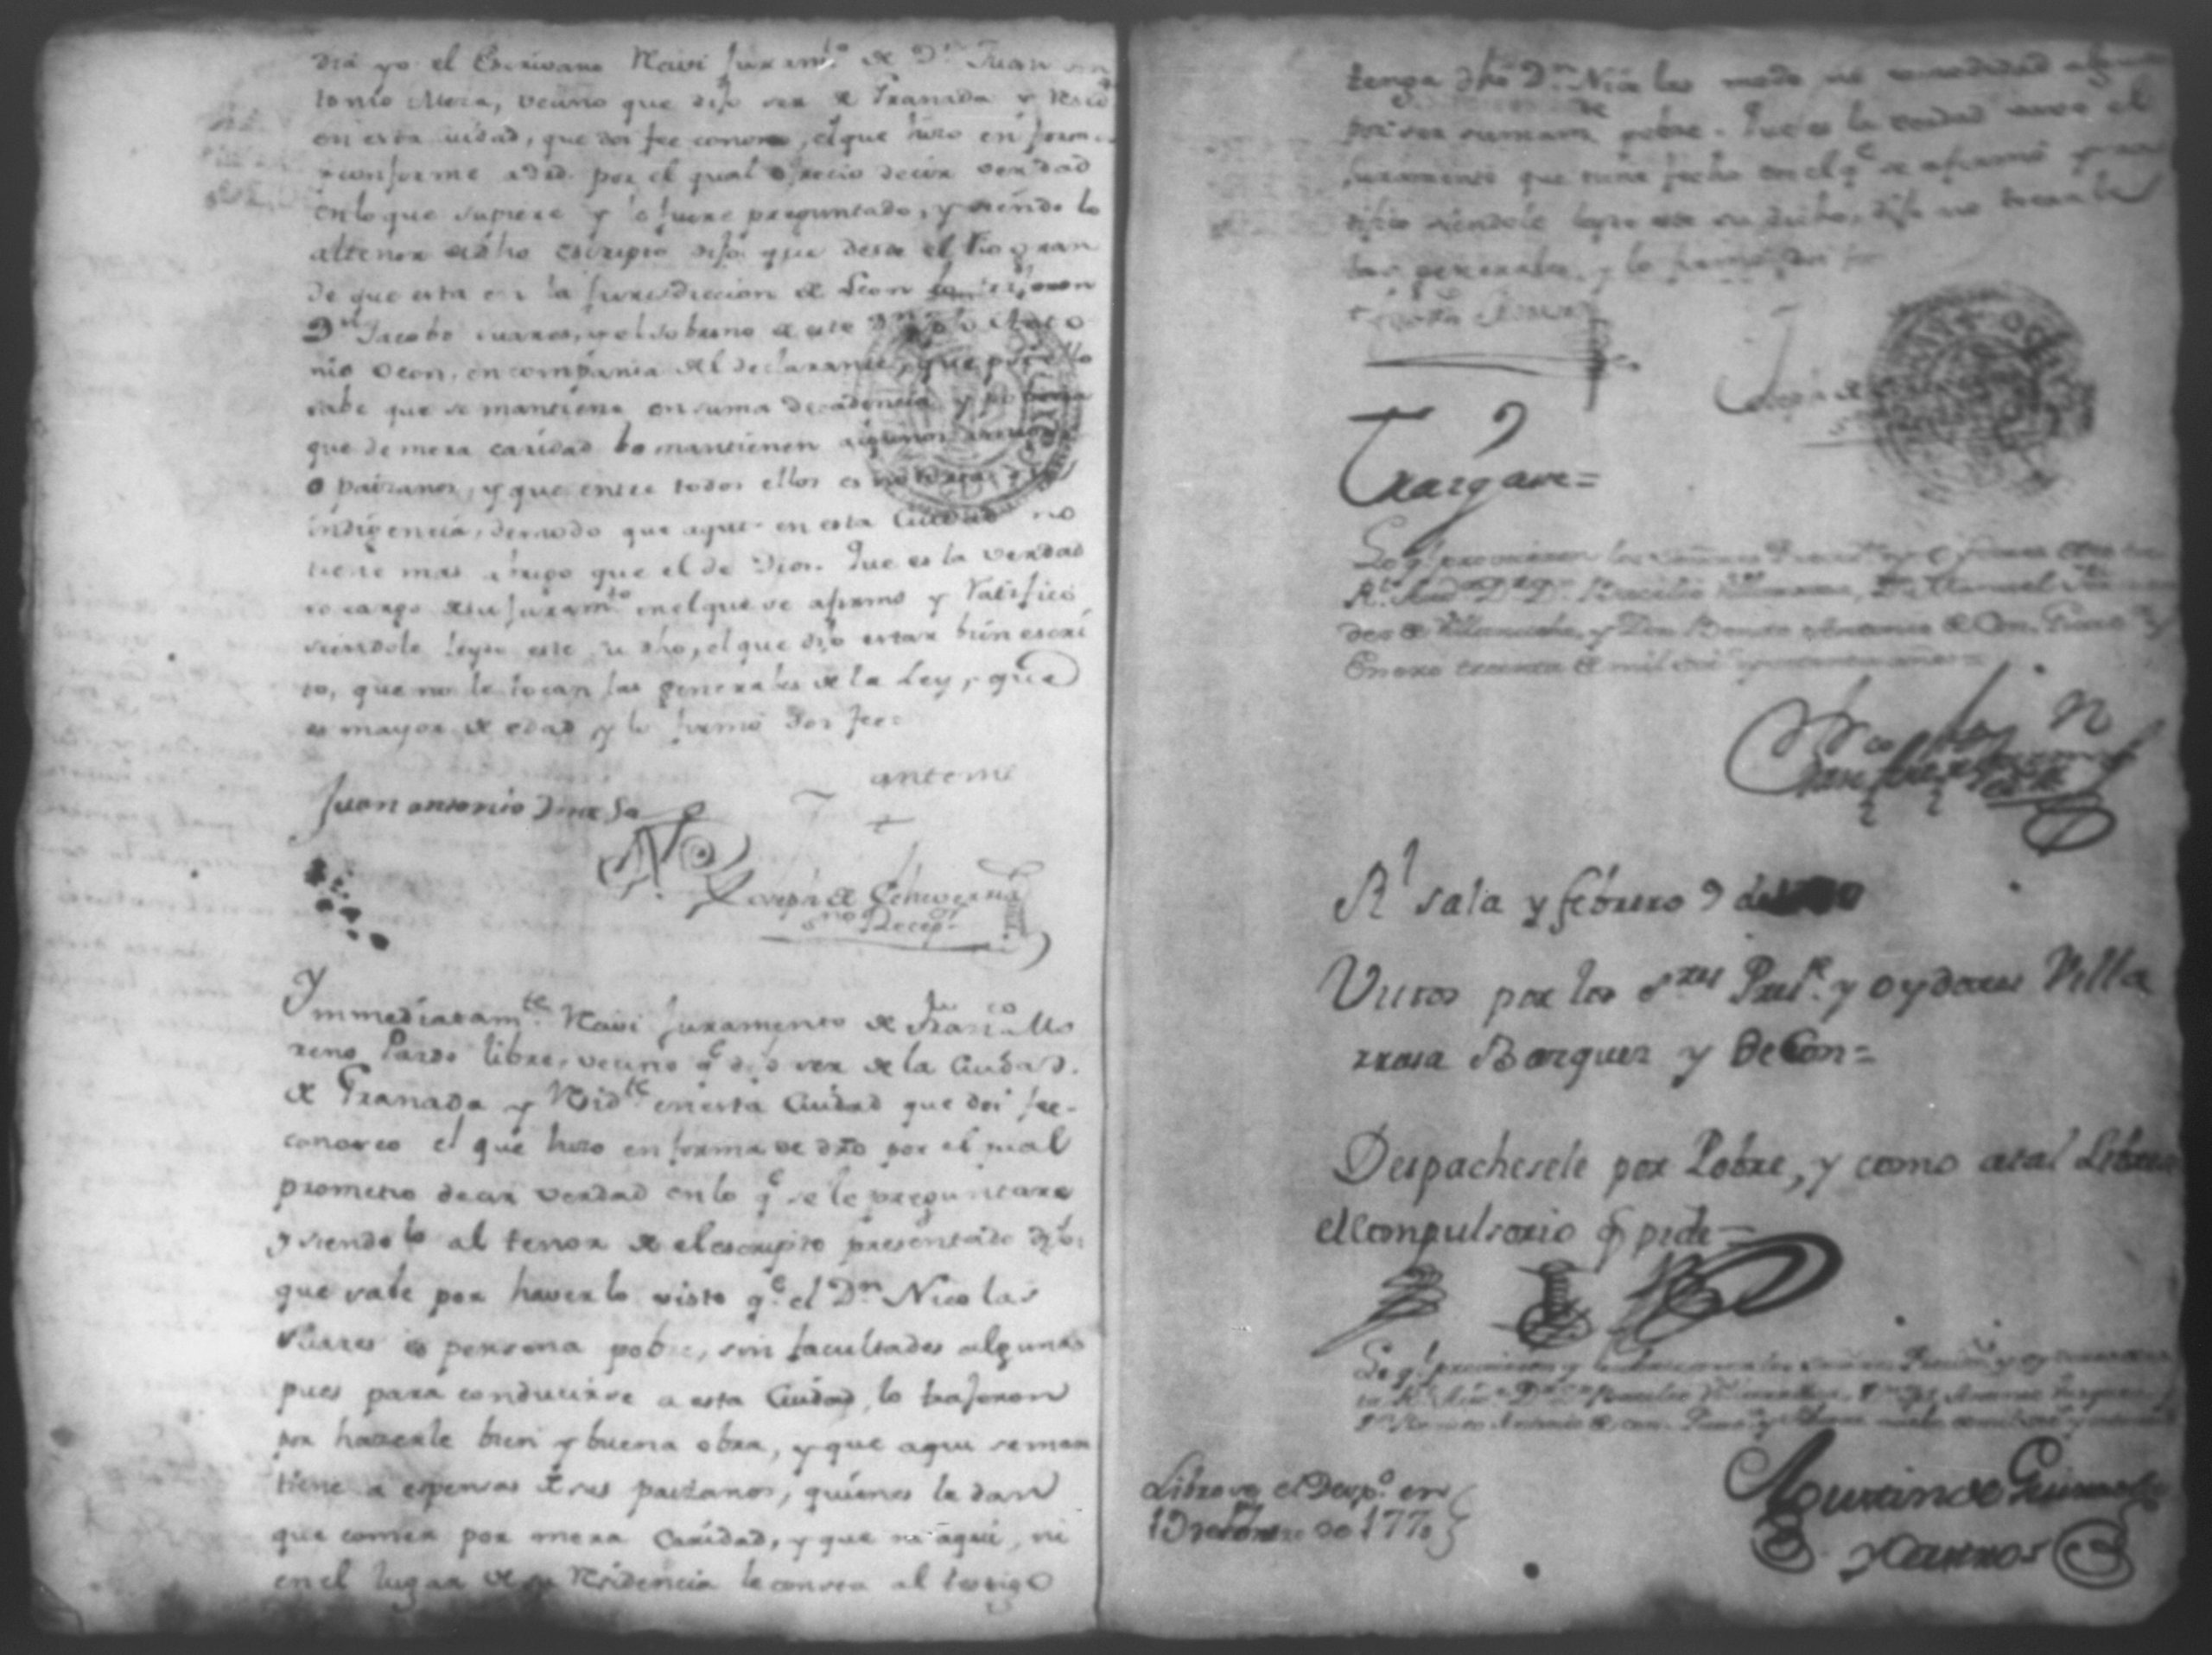 dia yo el Escrivano Recivi juram.to de D.n Juan An
tonio Meza, vecino que dijo ser de Granada y Resid
en esta ciudad, que doi fee conosco, el que hizo en forma
conforme a dro. por el qual ofrecio decir verdad
en lo que supiere y le fuere preguntado, y siendolo
al tenor de dho escripto dijo: que desde el Rio gran
de que esta en la jurisdiccion de Leon lo trajeron
D.n Jacobo suares, y el sobrino de este D.n Anto
nio Ocon, en compañia del declarante, que por ello
sabe que se mantiene en suma decadencia y pobreza
que de mera caridad lo mantienen algunos
o paizanos, y que entre todos ellos es notoria su
indigencia, de modo que aqui en esta Ciudad no
tiene mas abrigo que el de Dios. Que es la verdad
so cargo de su juram.to en el que se afirmo y Ratifico
siendole leydo este su dho, el que dijo estar bien escri
to, que no le tocan las generales de la Ley, que
es mayor de edad, y lo firmo doi fee=
Juan antonio de meza
ante mi
Joseph de Echeverria
s.no Recep.or
Ymmediatam.te Recivi juramento de Fran.co Mo
reno Pardo libre, vecino q.e dijo ser de la Ciudad.
de Granada y Resid.te en esta Ciudad que doi fee
conosco el que hizo en forma de dro por el qual
prometio decir verdad en lo q.e se le preguntare
y siendolo al tenor de el escripto presentado dijo:
que sabe por haverlo visto q.e el D.n Nicolas
Suares es persona pobre, sin facultades algunas
pues para conducirse a esta Ciudad, lo trajeron
por hazerle bien y buena obra, y que aqui se man
tiene a espensas de sus paizanos, quienes le dan
que comer por mera Caridad, y que ni aqui, ni
en el lugar de su Residencia le consta al testigo
tenga dho D.n Nicolas modo ni comodidad alguna
por ser sumam.te pobre. Que es la verdad so cargo el
juramento que tiene fecho en el q.e se afirmó y ra
tifico siendole leydo este su dicho, dijo no tocarle
las generales y lo firmó doi fee
Joseph de
Traigase=
Lo q.e proveieron los señores Presid.te y oydores de esta
R.l Aud.a D.n Basilio Villarrasa, D.n Manuel
des de Villanueba, y Don Benito Antonio de Con. Guat.a y
Enero treinta de mil set.s y setenta años=
R.l sala y febrero 9 de
Vistos por los s.res Pres.te y oydores Villa
rrasa Basquez y De Con=
Despachesele por Pobre, y como a tal Librese
el compulsorio q.e pide=
Lo q.e proveieron y rubricaron los señores Presid.te y oydores
Librose el Desp.o en
19 de febrero de 1770